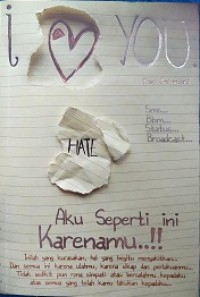 i YOU.
Sms...
Bbm...
Status...
Broadcast...
HATE
Aku Seperti ini
Karenamu..!!
Inilah yang kurasakan, hal yang begitu menyakitkan...
Dan semua ini karena ulahmu, karena sikap dan perlakuanmu...
Tidak sedikit pun rasa simpati atau bersalahmu kepadaku
atas semua yang telah kamu lakukan kepadaku...